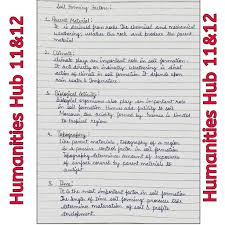 Soil Forming Factors :
1. Parent Material :
It is derived from rock. The chemical and mechanical
weathering weather the rock and produce the parent
material.
2. Climate :
Climate plays an important role in soil formation.
It act directly or indirectly. Weathering is direct
action of climate in soil formation. It depends upon
rain water & Temperature.
3. Biological Activity :
Biological organism also play an important role
in soil formation. Humus add fertility to soil.
Moreover the activity formed by humus is limited
to tropical region.
4. Topography :
Like parent materials, topography of a region is
a passive control factor in soil formation.
Topography determine amount of exposure
of surface covered by parent materials to
sunlight.
5. Time :
It is the most important factor in soil formation
The length of time soil forming process
determine maturation of soil & profile
development.
Humanities Hub 11&12
Humanities Hub 11&12